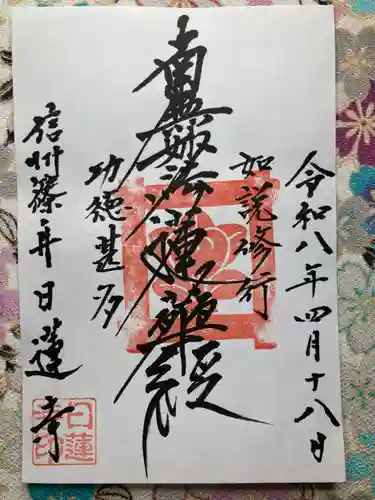 令和八年四月十八日
如説修行
南無妙法蓮華経
功徳甚多
信州篠井日蓮寺